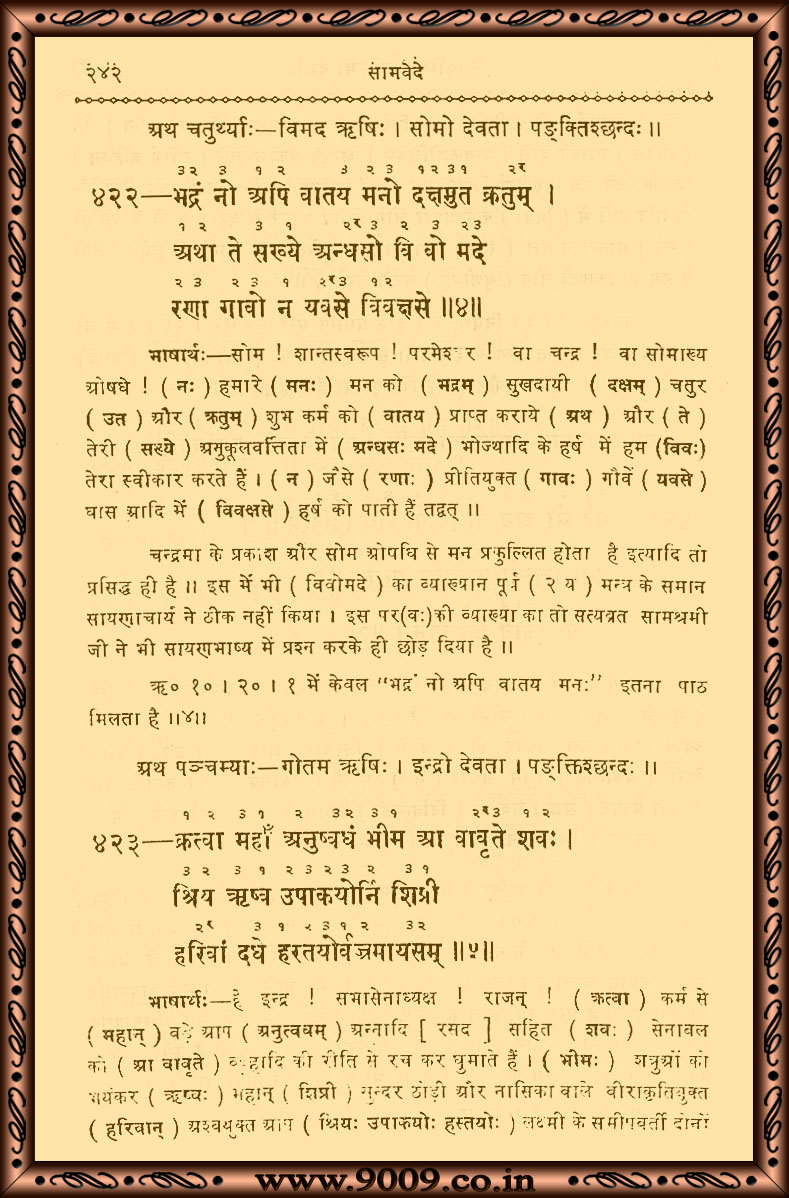 २४२ सामवेदे
अथ चतुर्थ्याः—विमद ऋषिः । सोमो देवता । पङ्क्तिश्छन्दः ॥
३२ ३ १ २ ३ २ ३ १२३१ २र
४२२—भद्रं नो अपि वातय मनो दक्षमुत क्रतुम् ।
१ २ ३ १ २र३ २ ३ २३
अथा ते सख्ये अन्धसो वि वो मदे
२ ३ २ ३ १ २र३ १२
रणा गावो न यवसे विवक्षसे ॥४॥
भाषार्थः—सोम ! शान्तस्वरूप ! परमेश्वर ! वा चन्द्र ! वा सोमाख्य
ओषधे ! ( नः ) हमारे ( मनः ) मन को ( भद्रम् ) सुखदायी ( दक्षम् ) चतुर
( उत ) और ( क्रतुम् ) शुभ कर्म को ( वातय ) प्राप्त कराये ( अथ ) और ( ते )
तेरी ( सख्ये ) अनुकूलवर्त्तिता में ( अन्धसः मदे ) भोज्यादि के हर्ष में हम (विवः)
तेरा स्वीकार करते हैं । ( न ) जैसे ( रणाः ) प्रीतियुक्त ( गावः ) गौवें ( यवसे )
घास आदि में ( विवक्षसे ) हर्ष को पाती हैं तद्वत् ॥
चन्द्रमा के प्रकाश और सोम ओषधि से मन प्रफुल्लित होता है इत्यादि तो
प्रसिद्ध ही है ॥ इस में भी ( विवोमदे ) का व्याख्यान पूर्व ( २ य ) मन्त्र के समान
सायणाचार्य ने ठीक नहीं किया । इस पर(वः)की व्याख्या का तो सत्यव्रत सामश्रमी
जी ने भी सायणभाष्य में प्रश्न करके ही छोड़ दिया है ॥
ऋ० १० । २० । १ में केवल "भद्रं नो अपि वातय मनः" इतना पाठ
मिलता है ॥४॥
अथ पञ्चम्याः—गोतम ऋषिः । इन्द्रो देवता । पङ्क्तिश्छन्दः ॥
१ २ ३ १ २ ३२ ३ १ २र३ १ २
४२३—क्रत्वा महाँ अनुष्वधं भीम आ वावृते शवः ।
३ २ ३ १ २ ३ २ ३ २ ३ १
श्रिय ऋष्व उपाकयोर्नि शिप्री
२र ३ १ २ ३ १ २ ३२
हरिवां दधे हस्तयोर्वज्रमायसम् ॥५॥
भाषार्थः—हे इन्द्र ! सभासेनाध्यक्ष ! राजन् ! ( क्रत्वा ) कर्म से
( महान् ) बड़े आप ( अनुत्वधम् ) अन्नादि [ रसद ] सहित ( शवः ) सेनाबल
को ( आ वावृते ) व्यूहादि की रीति से रच कर घुमाते हैं । ( भीमः ) शत्रुओं को
भयंकर ( ऋष्वः ) महान् ( शिप्री ) सुन्दर ठोड़ी और नासिका वाले वीराकृतियुक्त
( हरिवान् ) अश्वयुक्त आप ( श्रियः उपाकयोः हस्तयोः ) लक्ष्मी के समीपवर्ती दोनों
www.9009.co.in